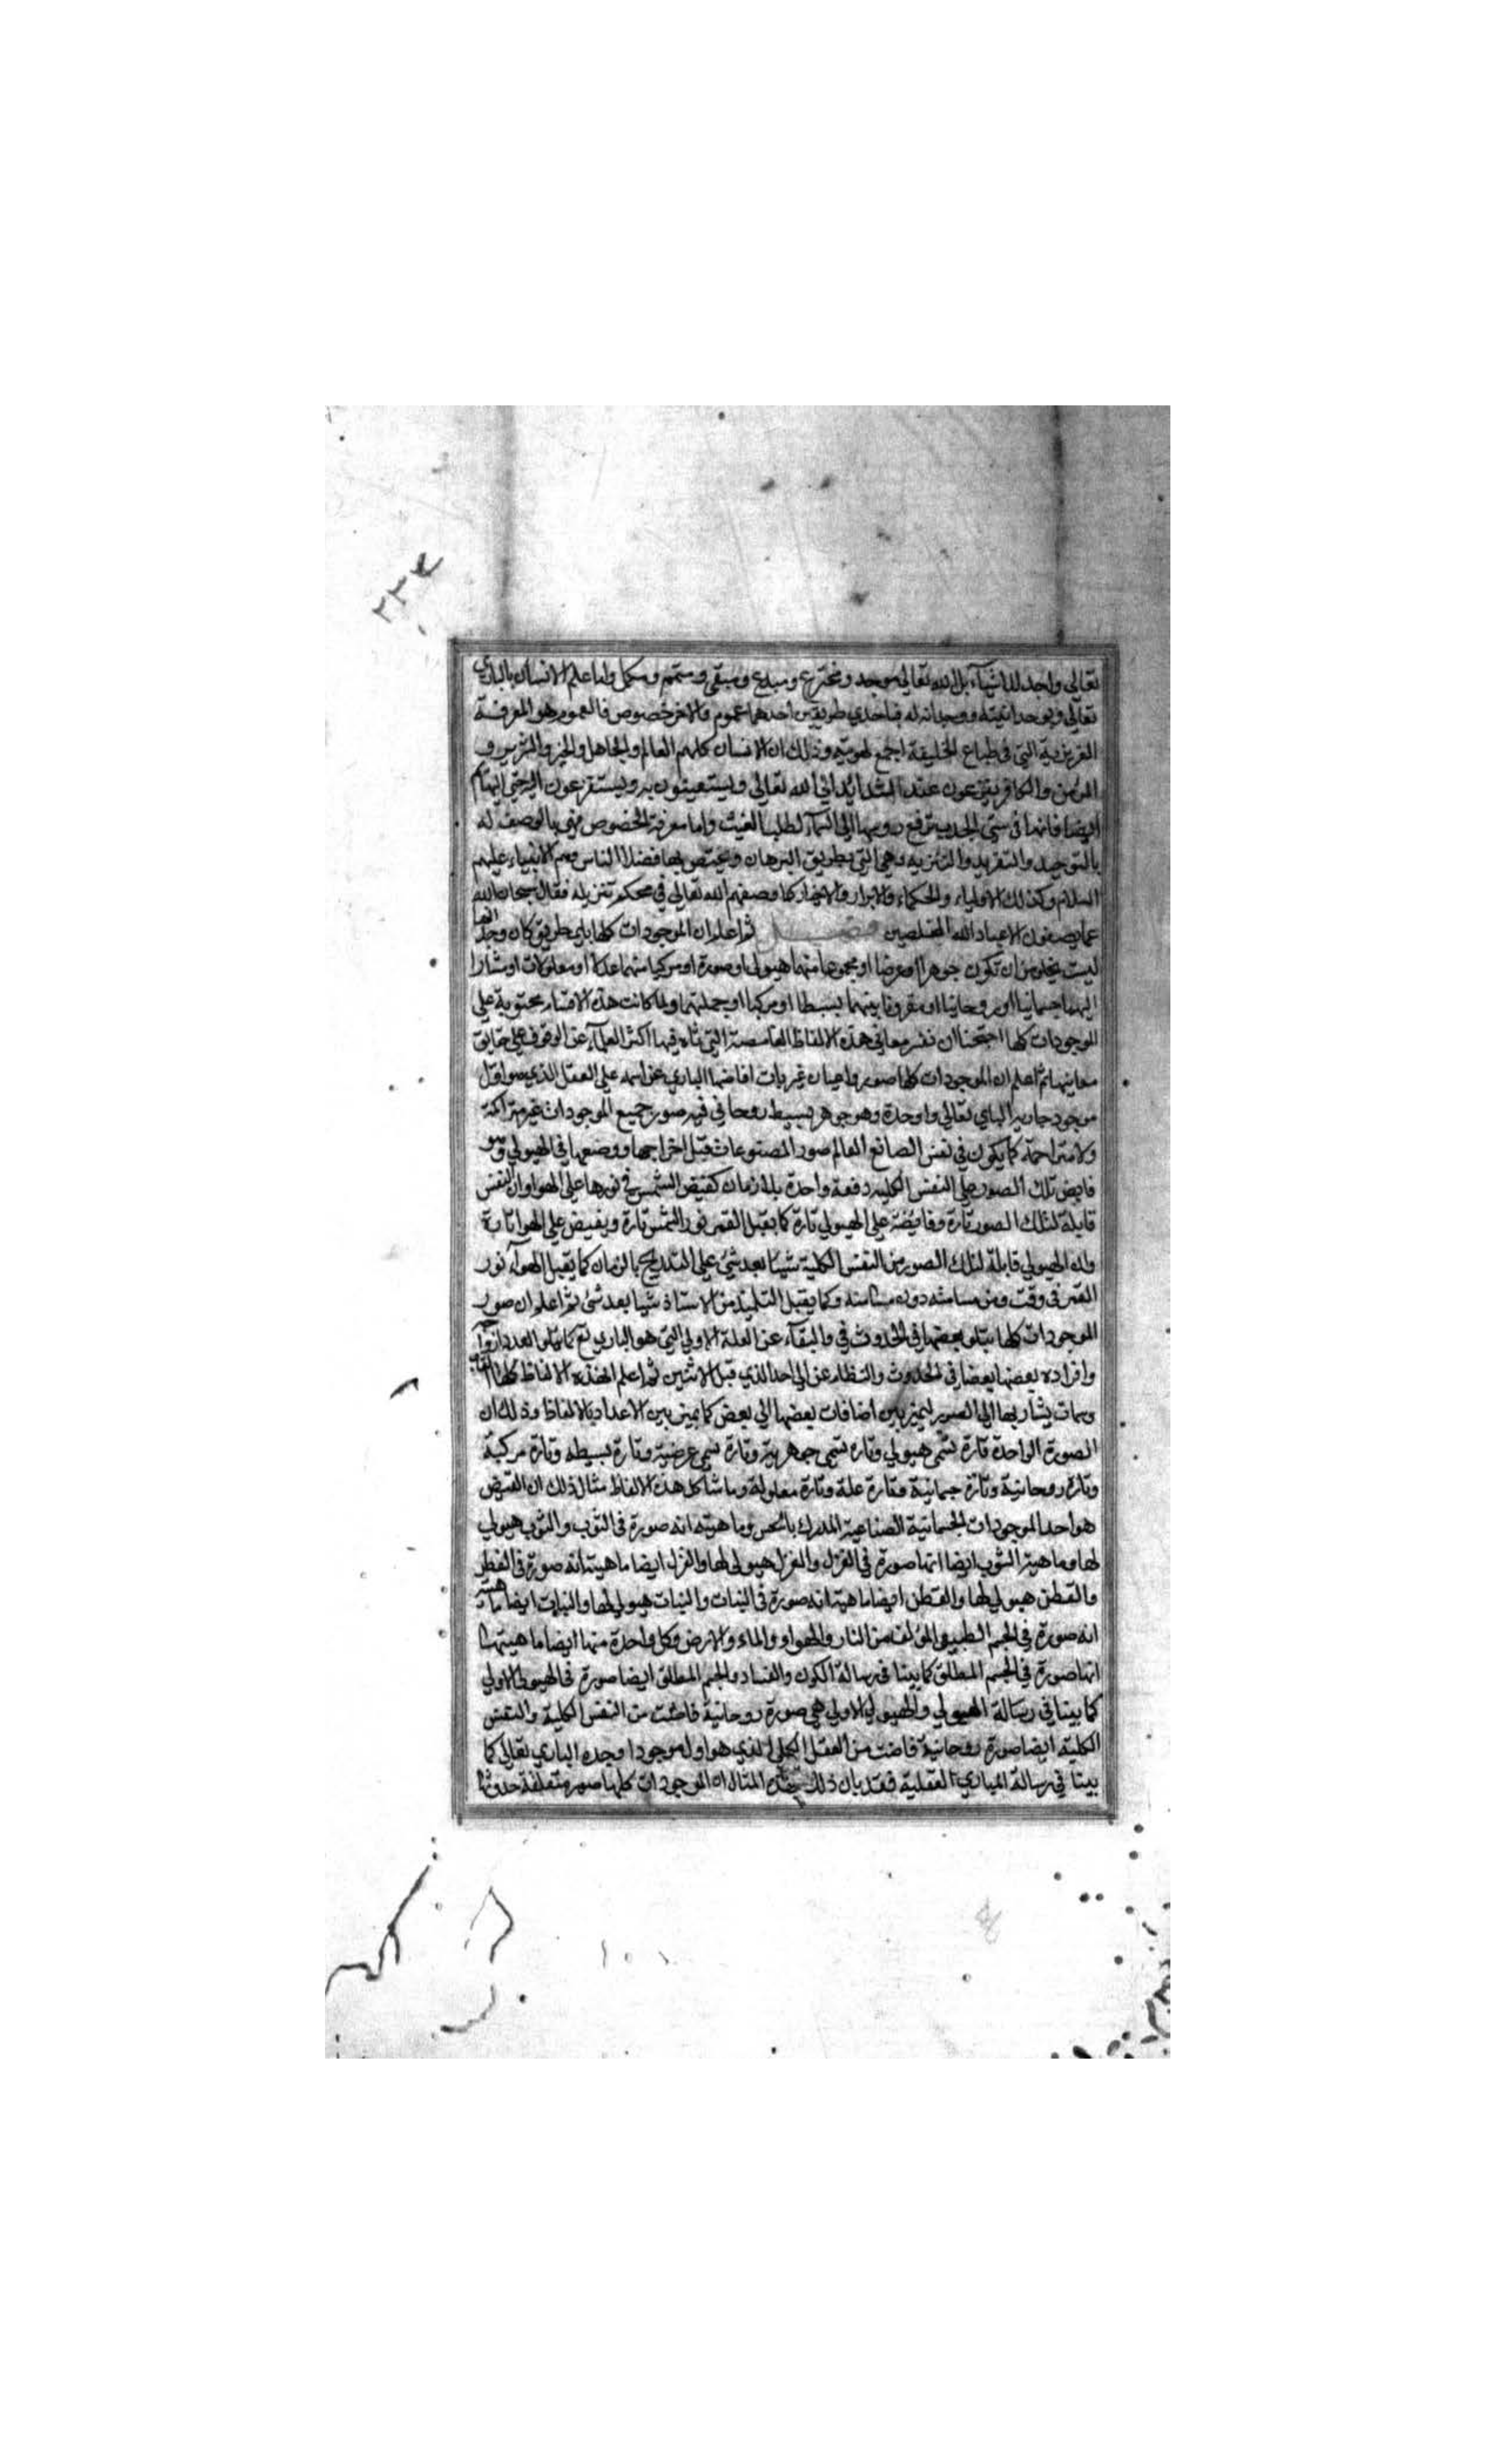 ٢٣٤
تعالى واجد للاشياء بل الله تعالى موجد ومخترع ومبدع ومبقي ومتمم ومكمل واما علم الانسان بالباري
تعالى وبوحدانيته ووجدانه له فباحدي طريقين احدهما عموم والاخر خصوص فالعموم هو المعرفة
الغريزية التي في طباع الخليقة اجمع لهويته وذلك ان الانسان كلهم العالم والجاهل والخير والشرير و
المؤمن والكافر يفزعون عند الشدائد الى الله تعالى ويستعينون به ويستفزعون اليه حتى البهائم
ايضا فانها في سني الجدب ترفع رؤسها الى السماء لطلب الغيث واما معرفة الخصوص فهي بالوصف له
بالتوحيد والتفريد والتنزيه وهي التي بطريق البرهان ويختص بها فضلا الناس وهم الانبياء عليهم
السلام وكذلك الاولياء والحكماء والابرار والاخيار كما وصفهم الله تعالى في محكم تنزيله فقال سبحان الله
عما يصفون الا عباد الله المخلصين فصل ثم اعلم ان الموجودات كلها باي طريق كان وجدانها
ليست يخلو من ان تكون جوهرا او عرضا او مجموعا منهما هيولى او صورة او مركبا منهما عللا او معلولات او مشارا
اليهما جسمانيا او روحانيا او مقرونا بينهما بسيطا او مركبا او جملتهما ولما كانت هذه الاقسام محتوية على
الموجودات كلها احتجنا ان نفسر معاني هذه الالفاظ الغامضة التي تاه فيها اكثر العلماء عن الوقوف على حقايق
معانيها ثم اعلم ان الموجودات كلها صور واعيان غيريات افاضها الباري عز اسمه على العقل الذي هو اول
موجود جاد به الباري تعالى واوجده وهو جوهر بسيط روحاني فيه صور جميع الموجودات غير متراكمة
ولا متزاحمة كما يكون في نفس الصانع العالم صور المصنوعات قبل اخراجها ووضعها في الهيولى وهو
فايض تلك الصور على النفس الكلية دفعة واحدة بلا زمان كفيض الشمس نورها على الهوا وان النفس
قابلة لتلك الصور تارة وفايضة على الهيولى تارة كما يقبل القمر نور الشمس تارة ويفيض على الهوا تارة
وان الهيولى قابلة لتلك الصور من النفس الكلية شيئا بعد شئ على التدريج بالزمان كما يقبل الهواء نور
القمر في وقت ومن مسامتة دون مسامتة وكما يقبل التلميذ من الاستاذ شيئا بعد شئ ثم اعلم ان صور
الموجودات كلها يتلو بعضها في الحدوث في والبقاء عن العلة الاولى التي هو الباري تع كما يتلو العدد ازواجه
وافراده بعضها بعضا في الحدوث والنظام عن الواحد الذي قبل الاثنين ثم اعلم ان هذه الالفاظ كلها القاب
وسمات يشار بها الى الصور ليميز بين اضافات بعضها الى بعض كما يميز بين الاعداد بالالفاظ وذلك ان
الصورة الواحدة تارة تسمى هيولى وتاره تسمى جوهرية وتارة تسمى عرضية وتارة بسيطه وتارة مركبة
وتارة روحانية وتارة جسمانية وتارة علة وتارة معلولة وما شاكل هذه الالفاظ مثال ذلك ان القميص
هو احد الموجودات الجسمانية الصناعية المدرك بالحس وما هيته انه صورة في الثوب والثوب هيولى
لها وماهية الثوب ايضا انها صورة في الغزل والغزل هيولى لها والغزل ايضا ماهيته انه صورة في القطن
والقطن هيولى لها والقطن ايضا ماهيته انه صورة في النبات والنبات هيولى لها والنبات ايضا ماهيته
انه صورة في الجسم الطبيعي المؤلف من النار والهواو والماء والارض وكل واحدة منها ايضا ماهيتها
انها صورة في الجسم المطلق كما بينا في رسالة الكون والفساد والجسم المطلق ايضا صورة في الهيولى الاولى
كما بينا في رسالة الهيولى والهيولى الاولى هي صورة روحانية فاضت من النفس الكلية والنفس
الكلية ايضا صورة روحانية فاضت من العقل الكلي الذي هو اول موجود اوجده الباري تعالى كما
بينا في رسالة المبادي العقلية فقد بان ذلك بهذه المثال ان الموجودات كلها صور متعلقة حدوثها